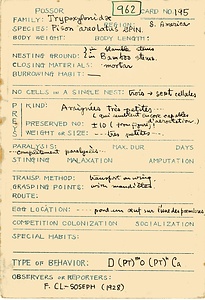 FOSSOR 962 CARD NO. 195
FAMILY: Trypoxylonidae REGION: S. America
SPECIES: Pison areolatus SPIN.
BODY WEIGHT: BODY LENGTH:
NESTING GROUND: in bramble stems
in Bamboo stems.
CLOSING MATERIALS: mortar
BURROWING HABIT: —
NO CELLS IN A SINGLE NEST: trois → sept cellules
PREY
KIND: Araignées très petites
(qui semblent encore capables
PRESERVED NO: ±10 (fragiles)
WEIGHT OR SIZE: très petites
PARALYSIS: MAX. DUR DAYS
complètement paralysées
STINGING MALAXATION AMPUTATION
TRANSP. METHOD: transport on wing
GRASPING POINTS: with mandibles
ROUTE:
EGG LOCATION: pond un œuf sur l'une des premières
COMPETITION COLONIZATION SOCIALIZATION
SPECIAL HABITS:
TYPE OF BEHAVIOR: D (PT)ᵐ O (PT)ⁿ Ca
OBSERVERS OR REPORTERS:
F. CL-JOSEPH (1928)